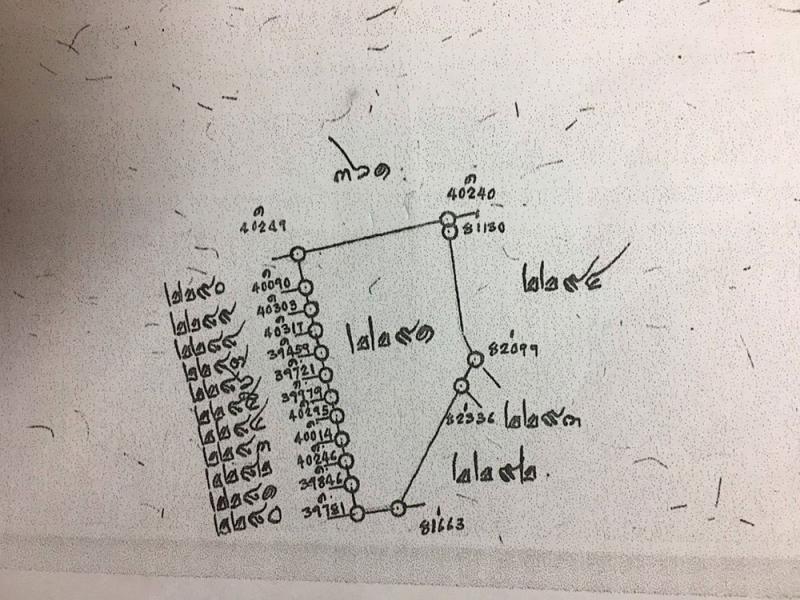 ๓๖๑
ค
40240
ค
40249
81130
๒๒๙๔
๒๒๙๐
40090
๒๒๘๙
40303
๒๒๘๘
40317
๒๒๙๑
๒๒๘๗
39459
82099
๒๒๘๖
39721
๒๒๘๕
39779
๒๒๘๔
40295
82336
๒๒๙๓
๒๒๘๓
40014
๒๒๘๒
40246
๒๒๙๒
๒๒๘๑
39846
๒๒๘๐
39781
81663